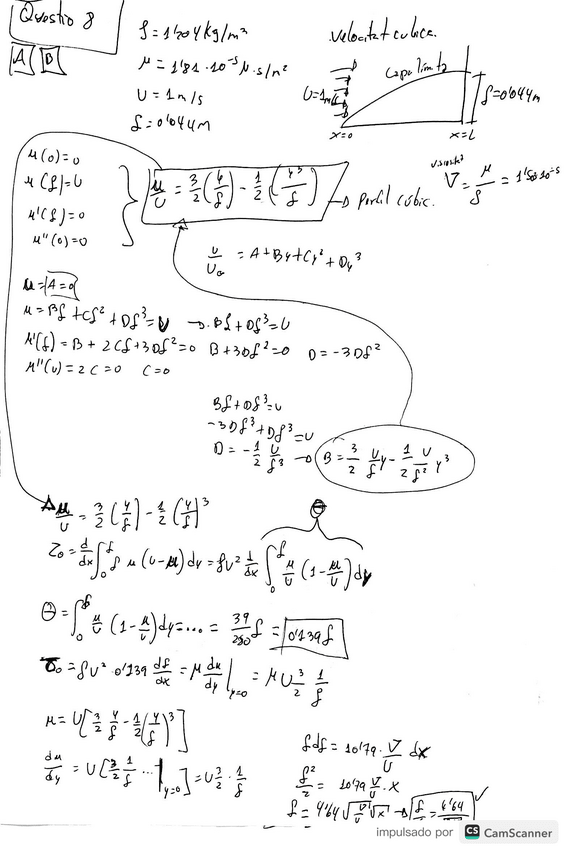 Questio 8
A B
ρ = 1'204 kg/m³
μ = 1'81 · 10⁻⁵ N·s/m²
U = 1 m/s
δ = 0'044 m
Velocitat cubica.
capa limita
U=1m/s
δ=0'044m
x=0 x=L
μ(0)=0
μ(δ)=U
μ'(δ)=0
μ''(0)=0
μ/U = 3/2 (y/δ) - 1/2 (y³/δ) → Perfil cúbic.
ν = μ/ρ = 1'50 10⁻⁵
u/U = A + By + Cy² + Dy³
μ = A=0
μ = Bδ + Cδ² + Dδ³ = U → Bδ + Dδ³ = U
μ'(δ) = B + 2Cδ + 3Dδ² = 0 B + 3Dδ² = 0 D = -3Dδ²
μ''(0) = 2C = 0 C = 0
Bδ + Dδ³ = U
-3Dδ³ + Dδ³ = U
D = -1/2 U/δ³ → B = 3/2 U/δ y - 1/2 U/δ² y³
μ/U = 3/2 (y/δ) - 1/2 (y/δ)³
θ
τ₀ = d/dx ∫₀^δ ρ μ (U-μ) dy = ρU² d/dx ∫₀^δ μ/U (1 - μ/U) dy
θ = ∫₀^δ μ/U (1 - μ/U) dy = ... = 39/280 δ = 0'139 δ
τ₀ = ρU² · 0'139 dδ/dx = μ du/dy |y=0 = μ U 3/2 1/δ
μ = U [3/2 y/δ - 1/2 (y/δ)³]
du/dy = U [3/2 1/δ ... |y=0] = U 3/2 · 1/δ
δdδ = 10'79 · ν/U dx
δ²/2 = 10'79 ν/U · x
δ = 4'64 √ν/U √x → δ = 4'64
impulsado por CS CamScanner